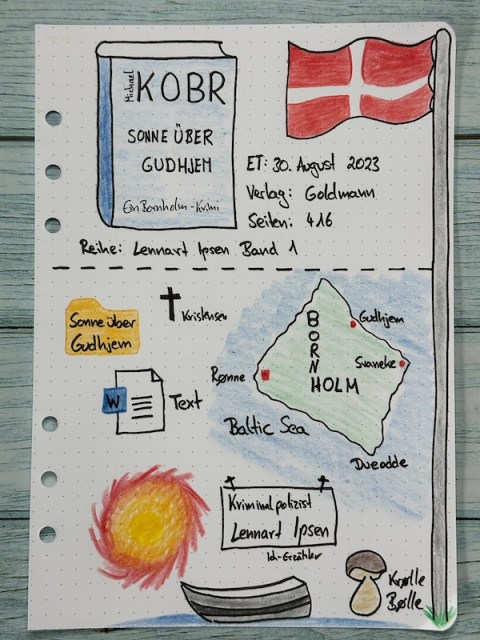 Michael
KOBR
SONNE ÜBER
GUDHJEM
Ein Bornholm-Krimi
ET: 30. August 2023
Verlag: Goldmann
Seiten: 416
Reihe: Lennart Ipsen Band 1
Sonne über
Gudhjem
Kristensen
W
Text
BORNHOLM
HOLM
Gudhjem
Svaneke
Rønne
Baltic Sea
Dueodde
Kriminalpolizist
Lennart Ipsen
Ich-Erzähler
Krølle
Bølle